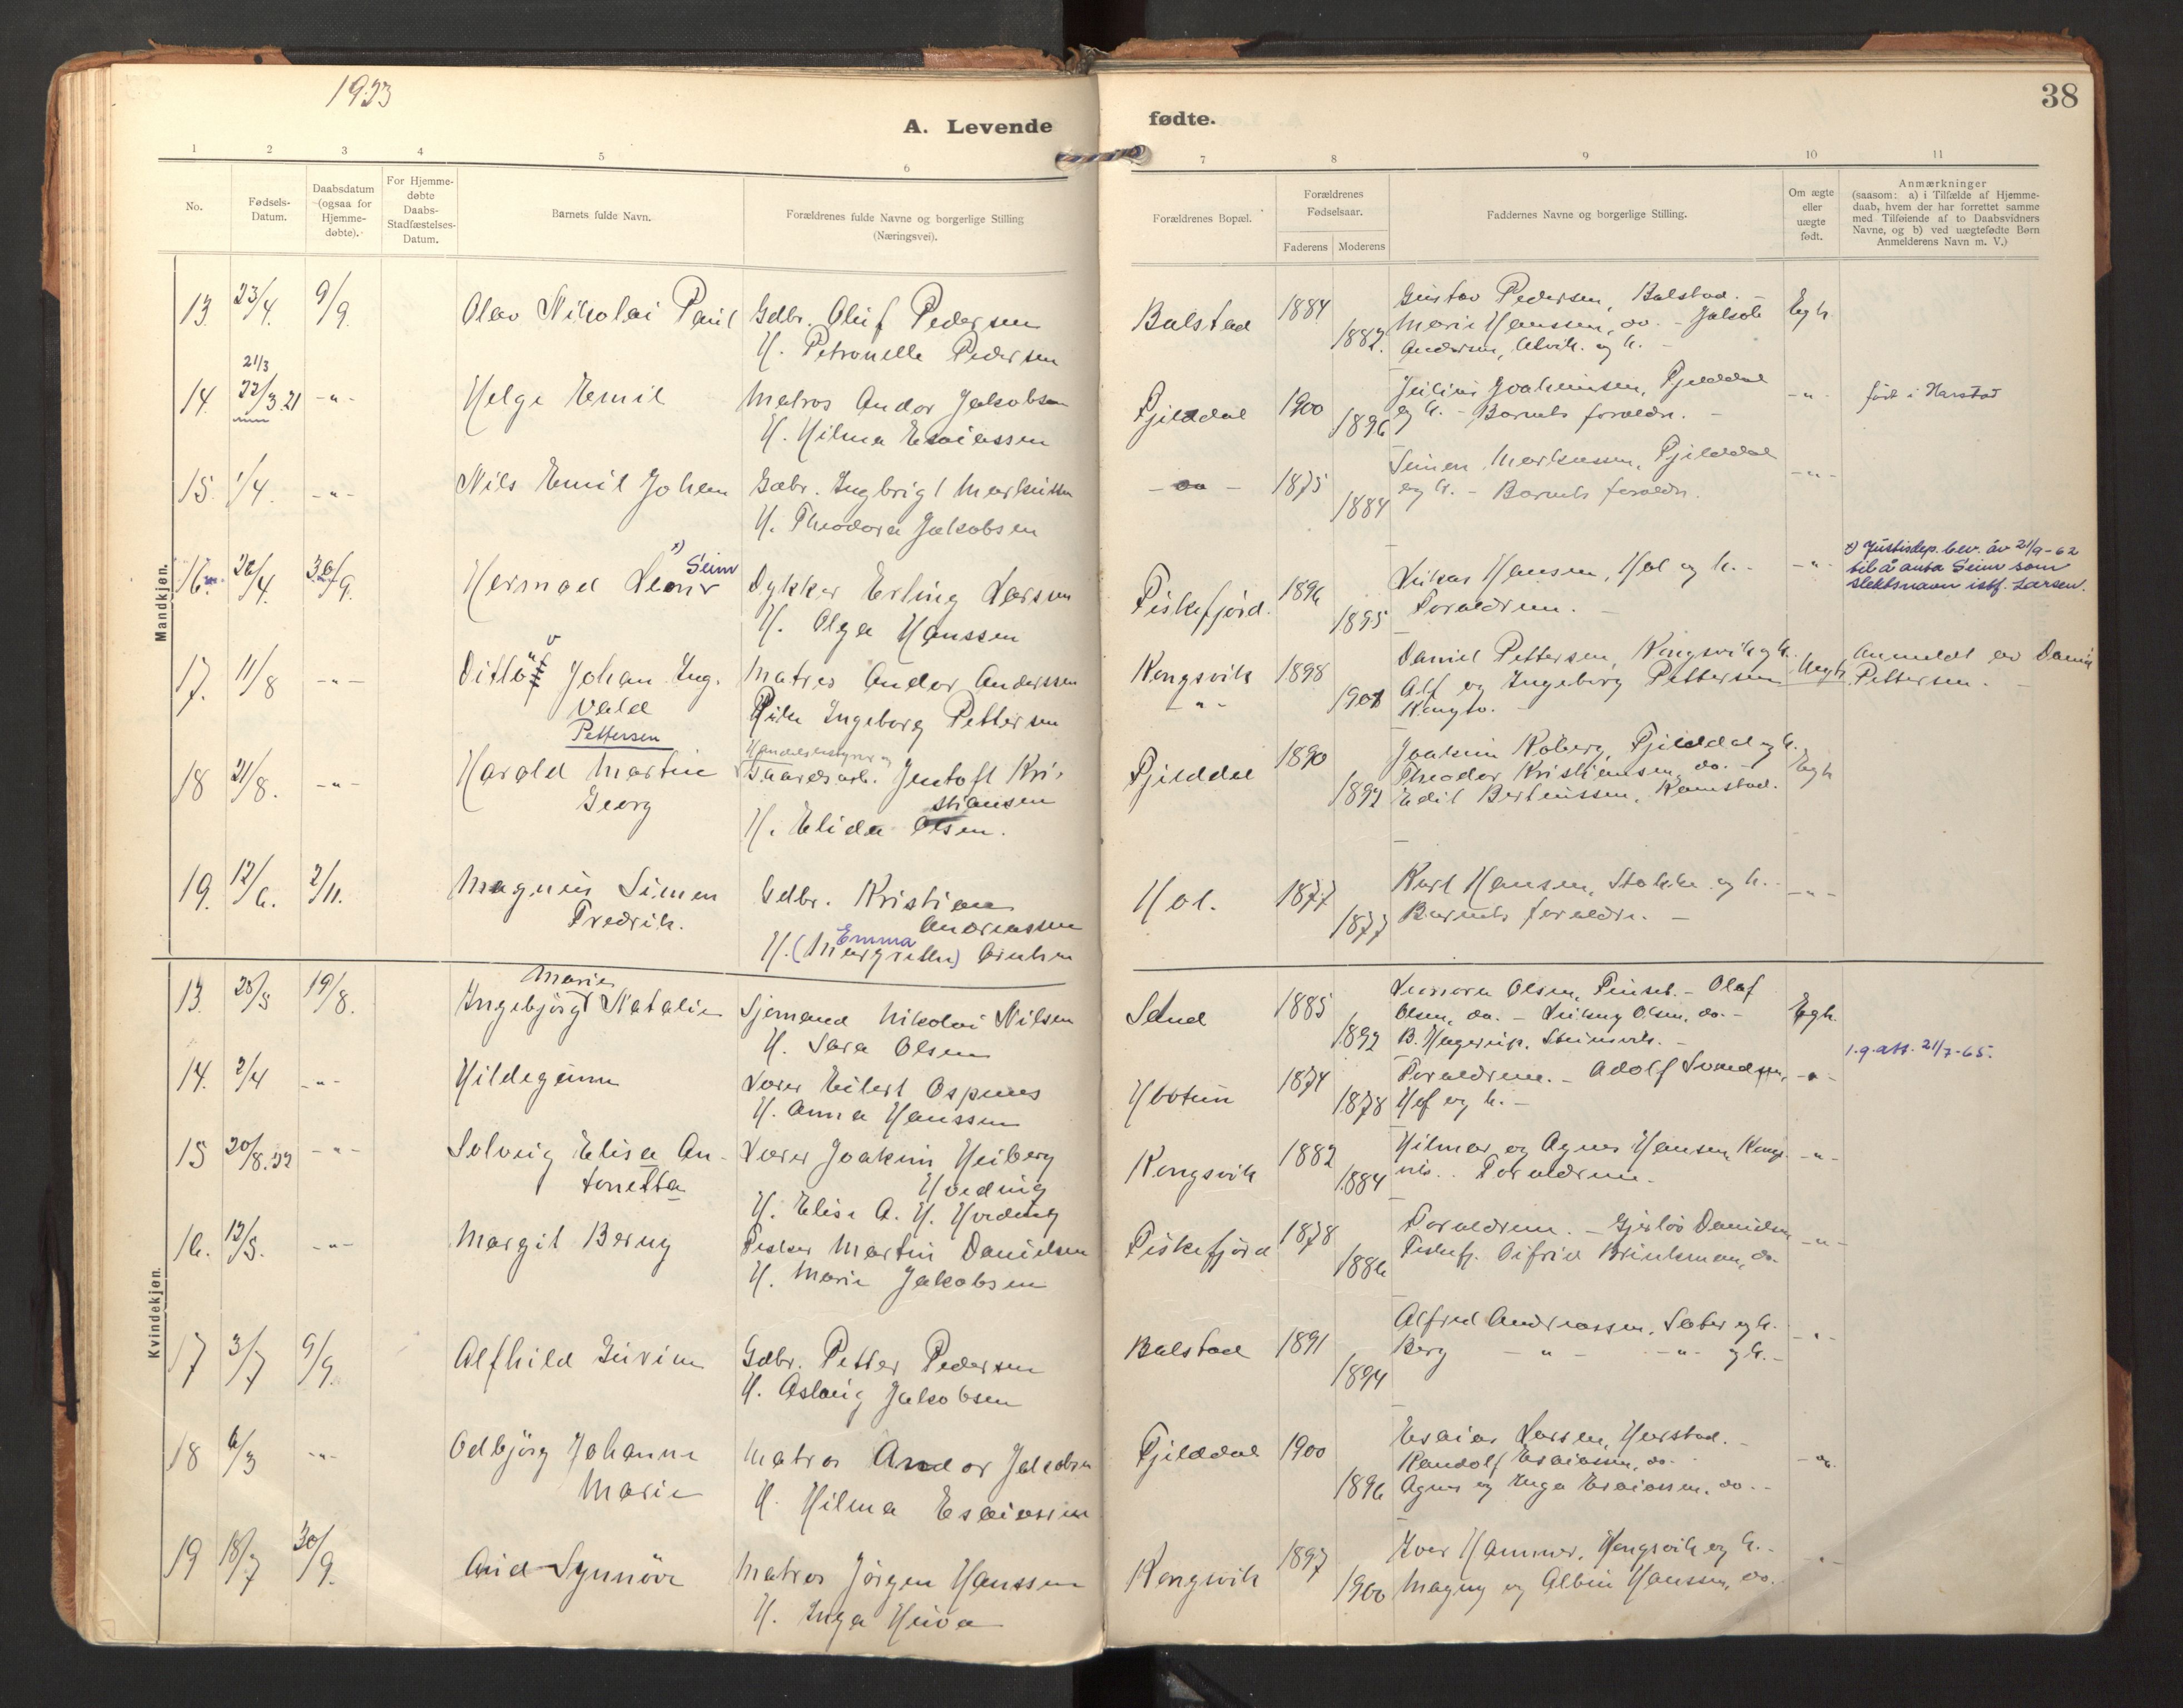 1923
38
A. Levende fødte.
1 2 3 4 5 6 7 8 9 10 11
No.
Fødsels-Datum.
Daabsdatum (ogsaa for Hjemme-døbte).
For Hjemme-døbte Daabs-Stadfæstelses-Datum.
Barnets fulde Navn.
Forældrenes fulde Navne og borgerlige Stilling
(Næringsvei).
Forældrenes Bopæl.
Forældrenes Fødselsaar.
Faderens Moderens
Faddernes Navne og borgerlige Stilling.
Om ægte eller uægte født.
Anmærkninger
(saasom: a) i Tilfælde af Hjemme-
daab, hvem der har forrettet samme
med Tilføiende af to Daabsvidners
Navne, og b) ved uægtefødte Børn
Anmelderens Navn m. V.)
Mandkjøn.
13. 23/4. 9/9. Olav Nikolai Paul Gdbr. Oluf Pedersen Balstad 1884 Gustav Pedersen, Balstad. - Egte
H. Petronelle Pedersen 1882. Marie Hanssen, do. - Jakob
Andersen, og h. -
21/3
14. 22/3.21 -"- Helge Emil Matros Andor Jakobsen Fjelddal 1900 Julius Joakimsen, Fjelddal -"- født i Harstad
H. Hilma Esaiassen 1896 og h. - Barnets foreldre. -
15. 1/4. -"- Nils Emil Johan Gdbr. Ingbrigt Markussen - do - 1875 Simen Markussen, Fjelddal -"-
H. Theodora Jakobsen 1884 og h. - Barnets foreldre.
16. 26/4. 30/9. Hermod Leonr x) Seim Dykker Erling Larsen Fiskefjord. 1896 Lukas Hansen, Hol og h. - -"- x) Justisdep. bev. av 21/9-62
til å anta Seim som
slektsnavn istf. Larsen.
H. Olga Hanssen 1895 Foreldrene. -
17. 11/8 -"- Johan Ing- Matros Andor Anderssen Kongsvik 1898 Daniel Pettersen, Kongsvik og h. Uegte Anmeldt av Daniel
vald Pike Ingeborg Pettersen -"- 1901 Alf og Ingeborg Pettersen Pettersen. -
Pettersen Kongsv. -
18 21/8. -"- Harald Martin Handelsbestyrer og
Gaardsarb. Jentoft Kri- Fjelddal 1890 Joakim Roberg, Fjelddal og h. - Egte
Georg stiansen Theodor Kristiansen, do. -
H. Elida Olsen. 1892 Edit Berteussen, Ramstad.
19. 12/6. 2/11. Magnus Simen Gdbr. Kristian Hol. 1877 Karl Hansen, Stokke og h. - -"-
Fredrik. Andreassen 1877 Barnets foreldre. -
H. (Margrethe) Emma
Kvindekjøn.
13. 25/5 19/8. Ingebjørg Marie Natalie Sjømand Nikolai Nilsen Sand 1885 Leonora Olsen, - Olaf Egte.
H. Sara Olsen 1892 Olsen, do. - Olsen, do. -
B. Hagerup,
14. 2/4 -"- Hildegunn Lærer Eilert Ospnes Hotun 1874 Foreldrene. - Adolf -"- 1.g.att. 21/7-65.
H. Anna Hanssen 1878 Hof og h. -
15 20/8.22 -"- Solveig Elisa An- Lærer Joakim Heiberg Kongsvik 1882 Hilmar og Agnes Hansen, Kongs- -"-
tonetta Hveding 1884 vik. . Foreldrene. -
H. Elise A. H. Hveding
16. 12/5. -"- Margit Berny Fisker Martin Danielsen Fiskefjord 1878 Foreldrene. - Danielsen -"-
H. Marie Jakobsen 1886 Fiskefj. Brinkman, do.
17 3/7 9/9. Alfhild Gdbr. Petter Pedersen Balstad 1891 Alfred Andreassen, og h. - -"-
H. Aslaug Jakobsen 1894 Berg -"- -"- og h. -
18 6/3 -"- Odbjørg Johanne Matros Andor Jakobsen Fjelddal 1900 Esaias Larsen, Harstad. - -"-
Marie H. Hilma Esaiassen 1896 Randolf Esaiassen, do. -
Agnes og Inga Esaiassen, do. -
19 18/7 30/9. Aud Synnöve Matros Jörgen Hanssen Kongsvik 1897 Iver Hammer, Kongsvik og h. - -"-
H. Inga 1900 Magny og Albin Hanssen, do.